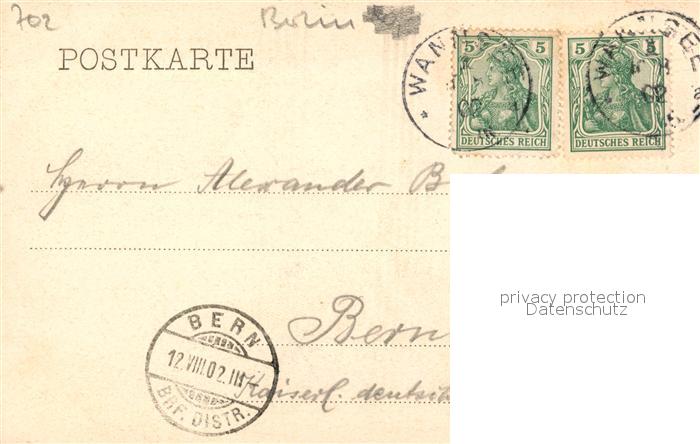 702 Berlin
POSTKARTE
* WANNSEE
5 5
DEUTSCHES REICH
5 5
DEUTSCHES REICH
* WANNSEE
Herrn Alexander
privacy protection
Datenschutz
Bern
BERN
BERN
12.VIII.02.III
BERN
BRF. DISTR.
Kaiserl. deutsch